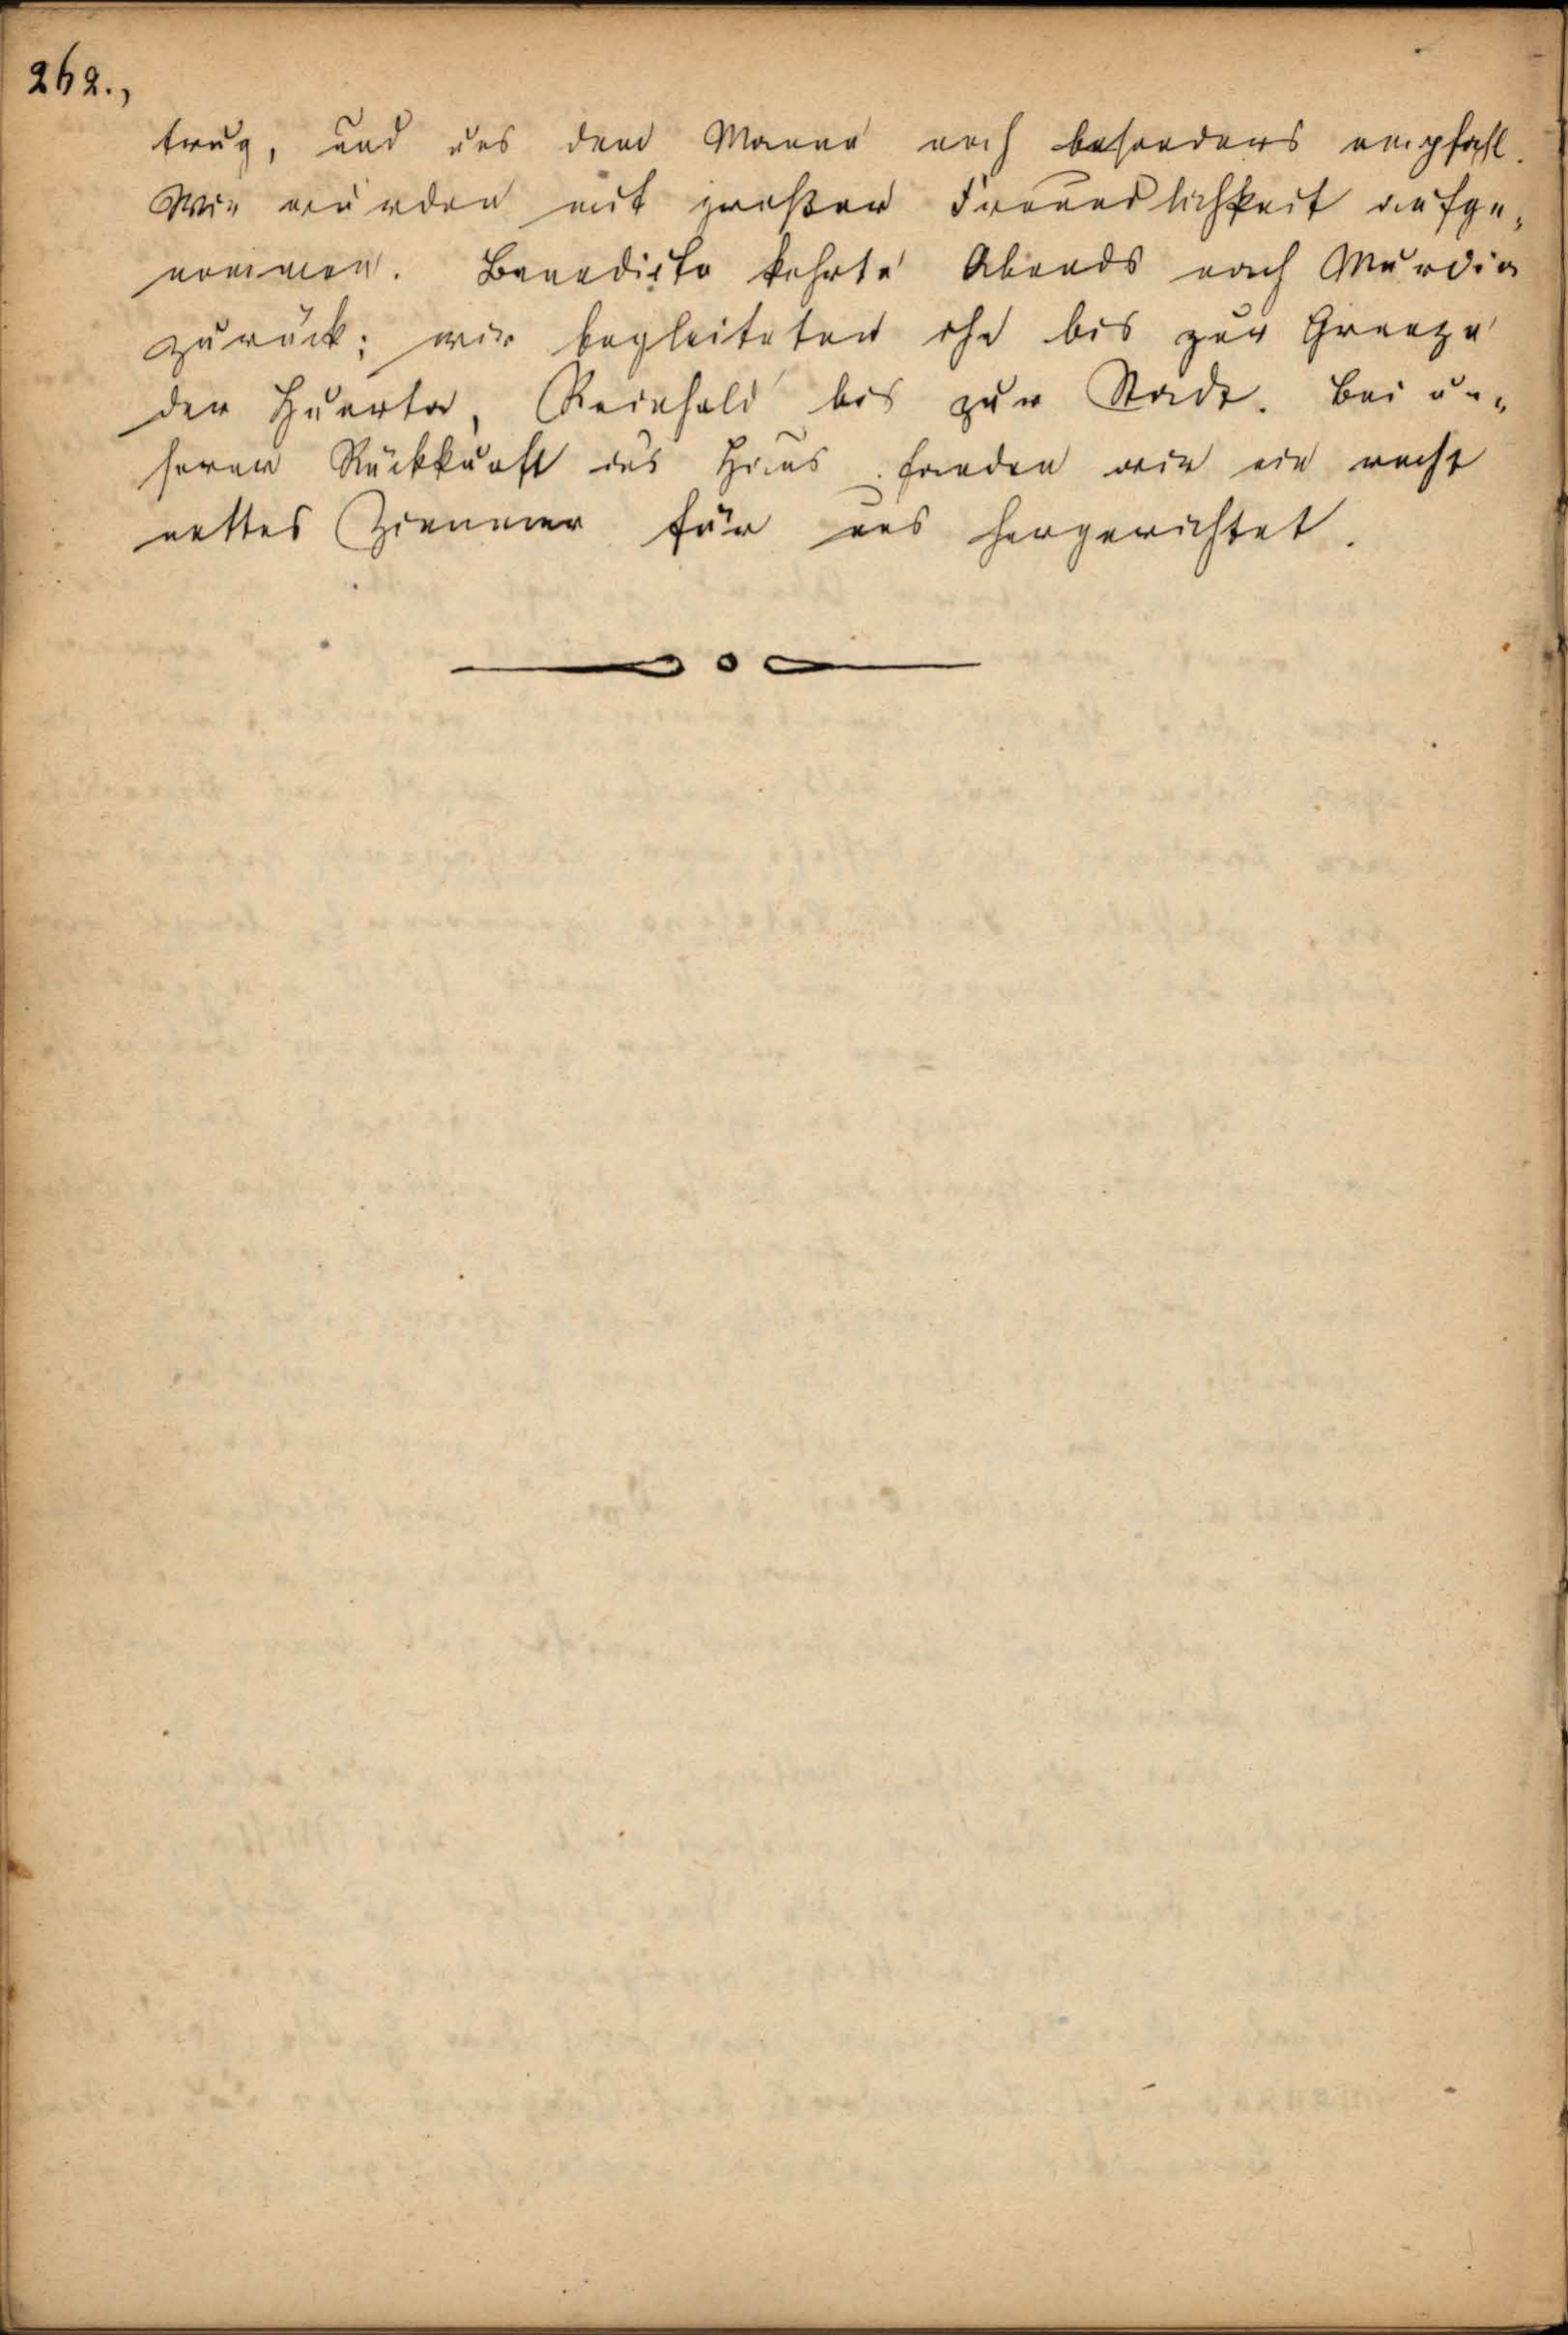 262.,
trug, und uns dem Manne noch besonders empfahl.
Wir wurden mit großer Freundlichkeit aufge„
nommen. Benedicto kehrte Abends nach Murcia
zurück; wir begleiteten ihn bis zur Grenze
der Huerta, Reinhold bis zur Stadt. Bei un„
serer Rückkunft ins Haus fanden wir ein recht
nettes Zimmer für uns hergerichtet.